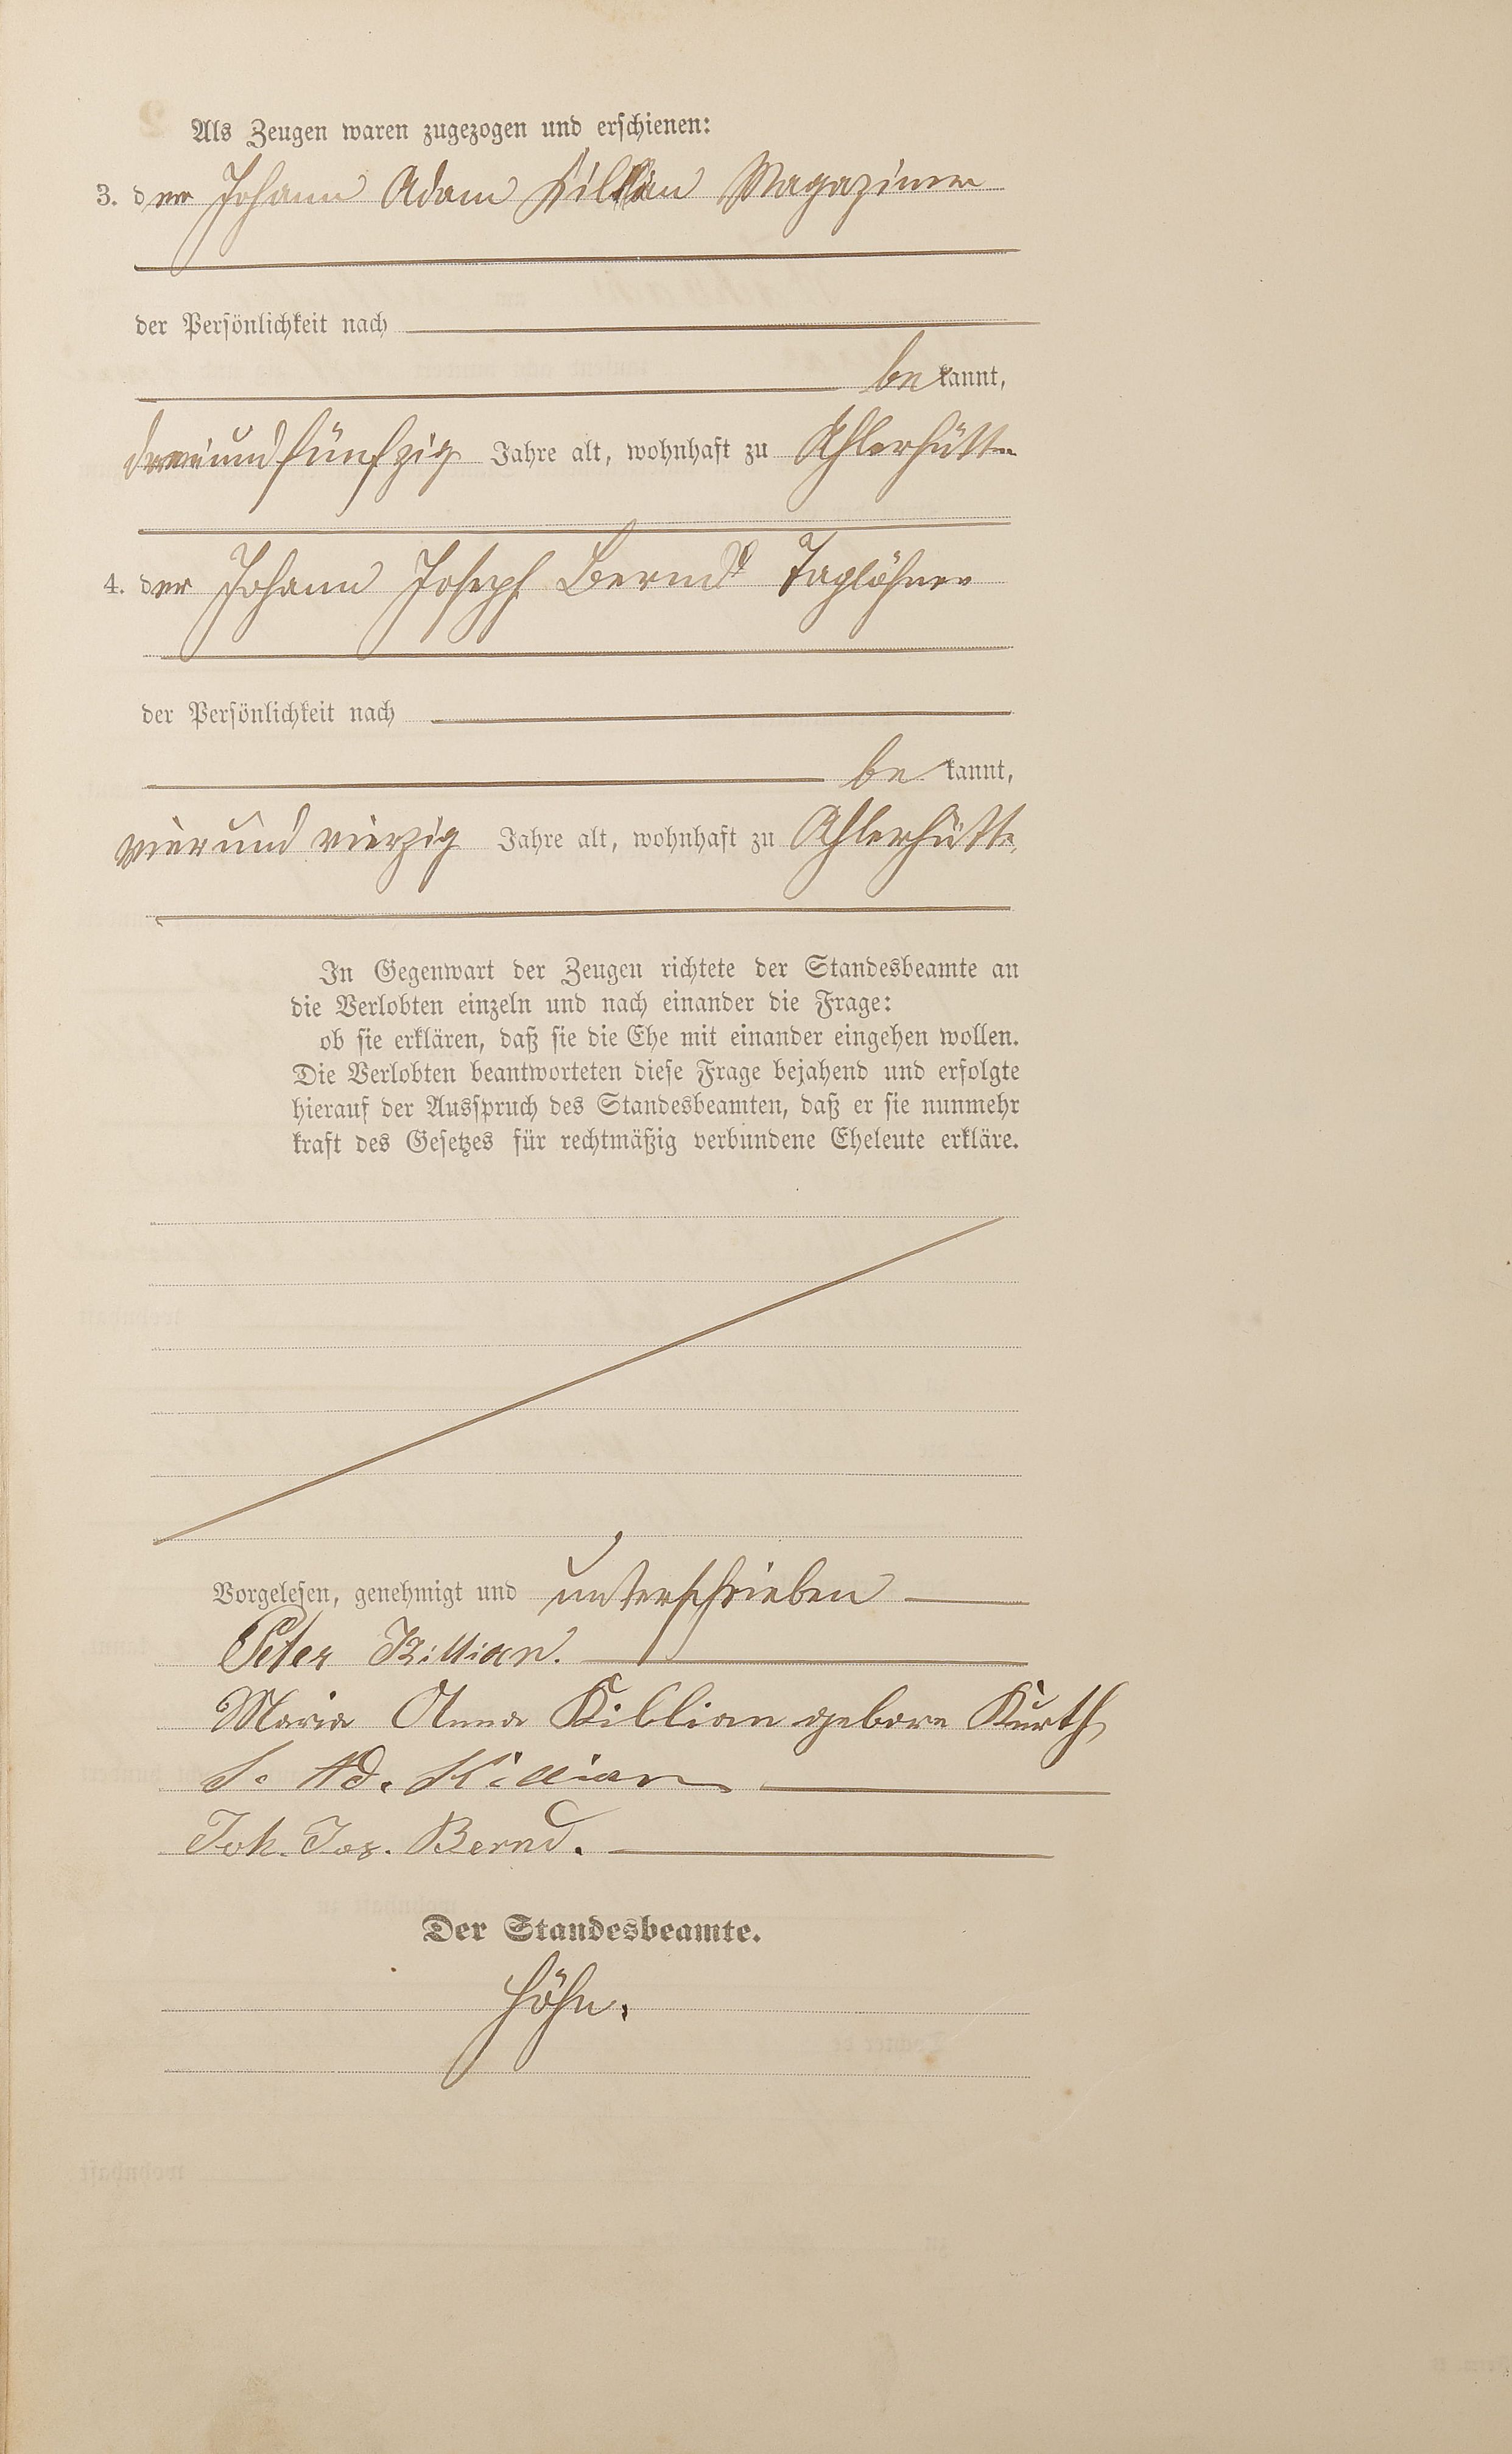 Als Zeugen waren zugezogen und erschienen:
3. der Johann Adam Killian Magaziner
der Persönlichkeit nach
bekannt,
dreiundfünfzig Jahre alt, wohnhaft zu Ahlerhütte
4. der Johann Joseph Bernd Taglöhner
der Persönlichkeit nach
be kannt,
vierundvierzig Jahre alt, wohnhaft zu Ahlerhütte,
In Gegenwart der Zeugen richtete der Standesbeamte an
die Verlobten einzeln und nach einander die Frage:
ob sie erklären, daß sie die Ehe mit einander eingehen wollen.
Die Verlobten beantworteten diese Frage bejahend und erfolgte
hierauf der Ausspruch des Standesbeamten, daß er sie nunmehr
kraft des Gesetzes für rechtmäßig verbundene Eheleute erkläre.
Vorgelesen, genehmigt und unterschrieben
Peter Killian.
Maria Anna Killian gebore Kurth
J. Ad. Killian
Joh. Jos. Bernd.
Der Standesbeamte.
Höhn.